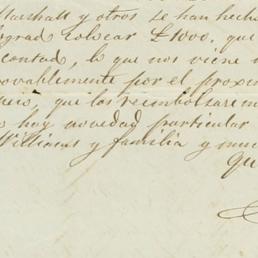 Marshall y otros se han hecho
lograd colocar £1000. que
contad, lo que nos viene
ovablemente por el proxim
que los reembolsarem
hay novedad particular
Williams y familia y muc
Qu